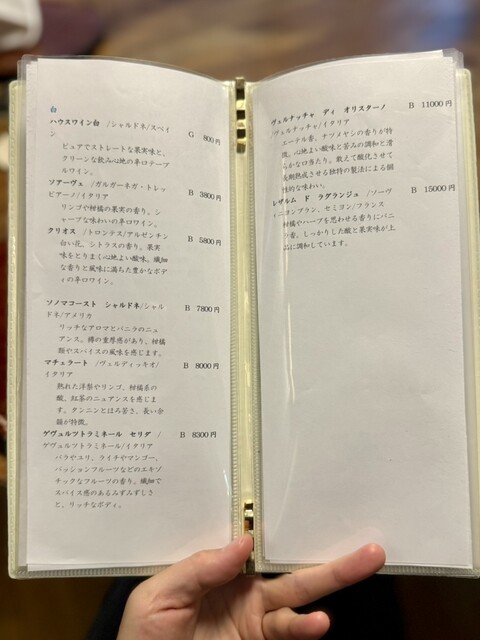 白
ハウスワイン白 /シャルドネ/スペイ G 800円
ン
ピュアでストレートな果実味と、
クリーンな飲み心地の辛口テーブ
ルワイン。
ソアーヴェ /ガルガーネガ・トレッ B 3800円
ビアーノ/イタリア
リンゴや柑橘の果実の香り。シ
ャープな味わいの辛口ワイン。
クリオス /トロンテス/アルゼンチン B 5800円
白い花、シトラスの香り。果実
味をとりまく心地よい酸味。繊細
な香りと風味に満ちた豊かなボデ
ィの辛口ワイン。
ソノマコースト シャルドネ/シャル B 7800円
ドネ/アメリカ
リッチなアロマとバニラのニュ
アンス。樽の重厚感があり、柑橘
類やスパイスの風味を感じます。
マチェラート /ヴェルディッキオ/ B 8000円
イタリア
熟れた洋梨やリンゴ、柑橘系の
酸、紅茶のニュアンスを感じま
す。タンニンとほろ苦さ、長い余
韻が特徴。
ゲヴェルツトラミネール セリダ / B 8300円
ゲヴェルツトラミネール/イタリア
バラやユリ、ライチやマンゴー、
パッションフルーツなどのエキゾ
チックなフルーツの香り。繊細で
スパイス感のあるみずみずしさ
と、リッチなボディ。
ヴェルナッチャ ディ オリスターノ B 11000円
/ヴェルナッチャ/イタリア
エーテル香、ナツメヤシの香りが特
徴。心地よい酸味と苦みの調和と滑
らかな口当たり。敢えて酸化させて
長期熟成させる独特の製法による個
性的な味わい。
レザルム ド ラグランジュ /ソーヴ B 15000円
ィニヨンブラン、セミヨン/フランス
柑橘やハーブを思わせる香りにバニ
ラ香。しっかりした酸と果実味が上
品に調和しています。